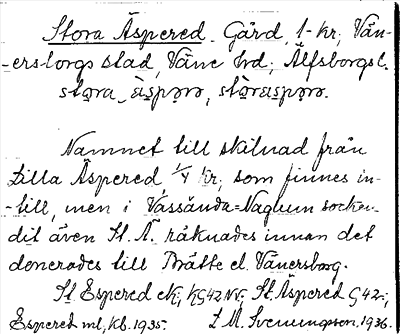 Stora Äspered. Gård, 1-kr; Vän-
-ersborgs stad, Väne hd; Älfsborgs l.
Namnet till skilnad från
Lilla Äspered 1/4 kr, som finnes in-
-till, men i Vassända=Naglum socken,
dit även St. Ä. räknades innan det
donerades till Brätte el. Vänersborg.
St. Espered St. Äspered
Espered ml, Kb. 1935. L. M. Svenungsson, 1936.